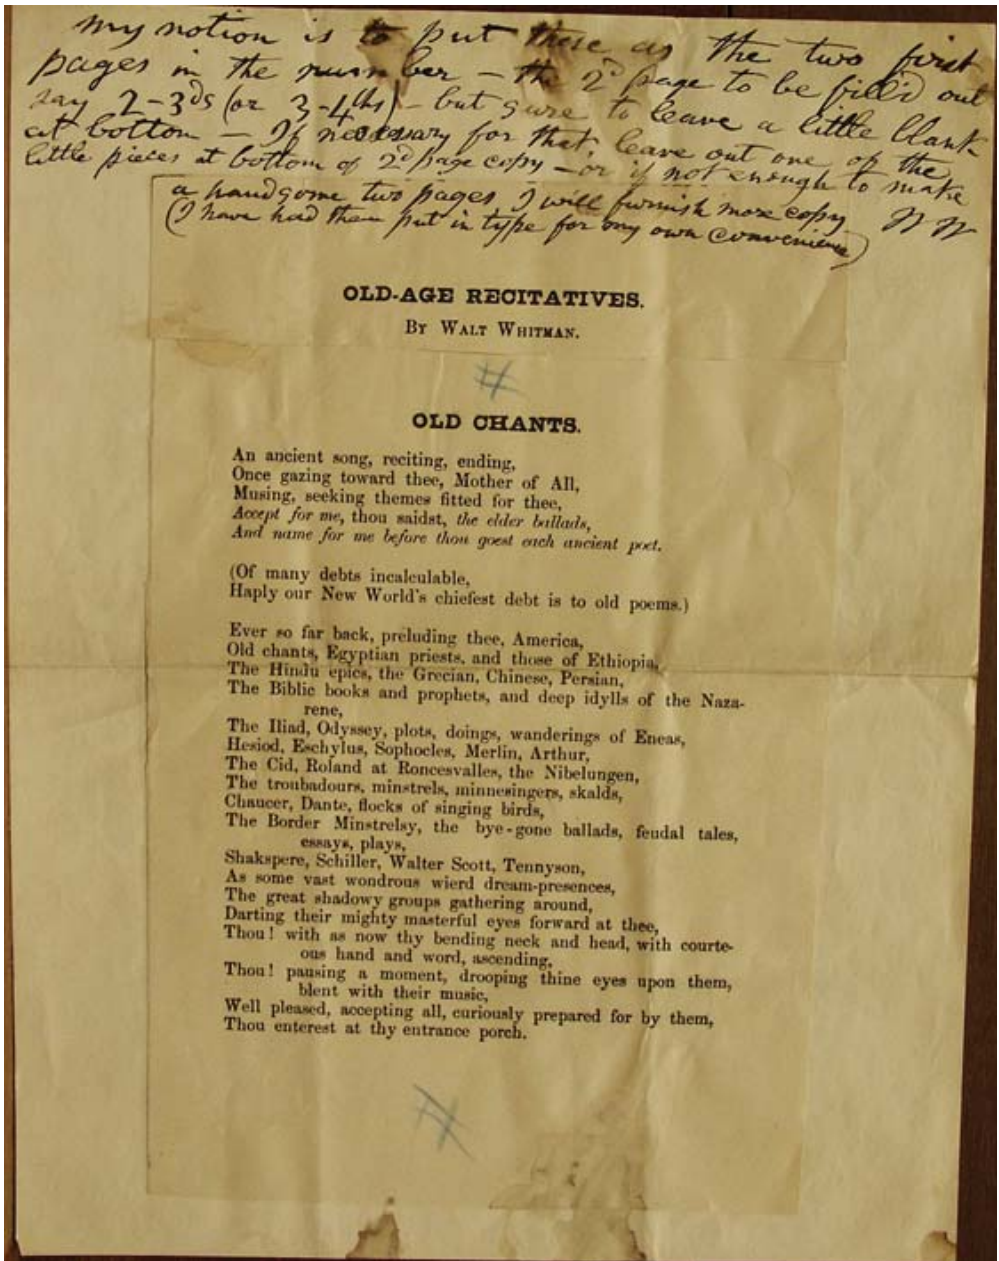 my notion is to put these as the two first
pages in the number – the 2d page to be fill'd out
say 2-3ds (or 3-4ths) – but sure to leave a little blank
at bottom – If necessary for that, leave out one of the
little pieces at bottom of 2d page copy – or if not enough to make
a handsome two pages I will furnish more copy W W
(I have had them put in type for my own convenience)
OLD-AGE RECITATIVES.
By Walt Whitman.
#
OLD CHANTS.
An ancient song, reciting, ending,
Once gazing toward thee, Mother of All,
Musing, seeking themes fitted for thee,
Accept for me, thou saidst, the elder ballads,
And name for me before thou goest each ancient poet.
(Of many debts incalculable,
Haply our New World's chiefest debt is to old poems.)
Ever so far back, preluding thee, America,
Old chants, Egyptian priests, and those of Ethiopia,
The Hindu epics, the Grecian, Chinese, Persian,
The Biblic books and prophets, and deep idylls of the Naza-
rene,
The Iliad, Odyssey, plots, doings, wanderings of Eneas,
Hesiod, Eschylus, Sophocles, Merlin, Arthur,
The Cid, Roland at Roncesvalles, the Nibelungen,
The troubadours, minstrels, minnesingers, skalds,
Chaucer, Dante, flocks of singing birds,
The Border Minstrelsy, the bye-gone ballads, feudal tales,
essays, plays,
Shakspere, Schiller, Walter Scott, Tennyson,
As some vast wondrous wierd dream-presences,
The great shadowy groups gathering around,
Darting their mighty masterful eyes forward at thee,
Thou! with as now thy bending neck and head, with courte-
ous hand and word, ascending,
Thou! pausing a moment, drooping thine eyes upon them,
blent with their music,
Well pleased, accepting all, curiously prepared for by them,
Thou enterest at thy entrance porch.
#